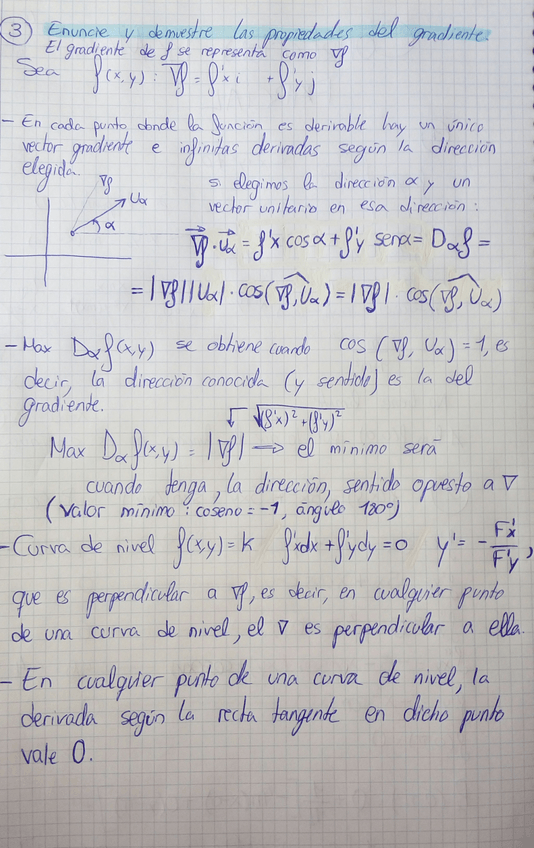 ③ Enuncie y demuestre las propiedades del gradiente.
El gradiente de f se representa como ∇f
Sea f(x,y): ∇f = f'x i + f'y j
- En cada punto donde la función es derivable hay un único
vector gradiente e infinitas derivadas según la dirección
elegida.
∇f
Uα
α
si elegimos la dirección α y un
vector unitario en esa dirección:
∇f · uα = f'x cosα + f'y senα = Dαf =
= |∇f||Uα| · cos(∇f, Uα) = |∇f| · cos(∇f, Uα)
- Max Dα f(x,y) se obtiene cuando cos (∇f, Uα) = 1, es
decir, la dirección conocida (y sentido) es la del
gradiente.
√(f'x)² + (f'y)²
Max Dα f(x,y) = |∇f| → el mínimo será
cuando tenga, la dirección, sentido opuesto a ∇
(valor mínimo: coseno = -1, ángulo 180°)
- Curva de nivel f(x,y) = k f'xdx + f'ydy = 0 y' = - F'x / F'y,
que es perpendicular a ∇f, es decir, en cualquier punto
de una curva de nivel, el ∇ es perpendicular a ella.
- En cualquier punto de una curva de nivel, la
derivada según la recta tangente en dicho punto
vale 0.